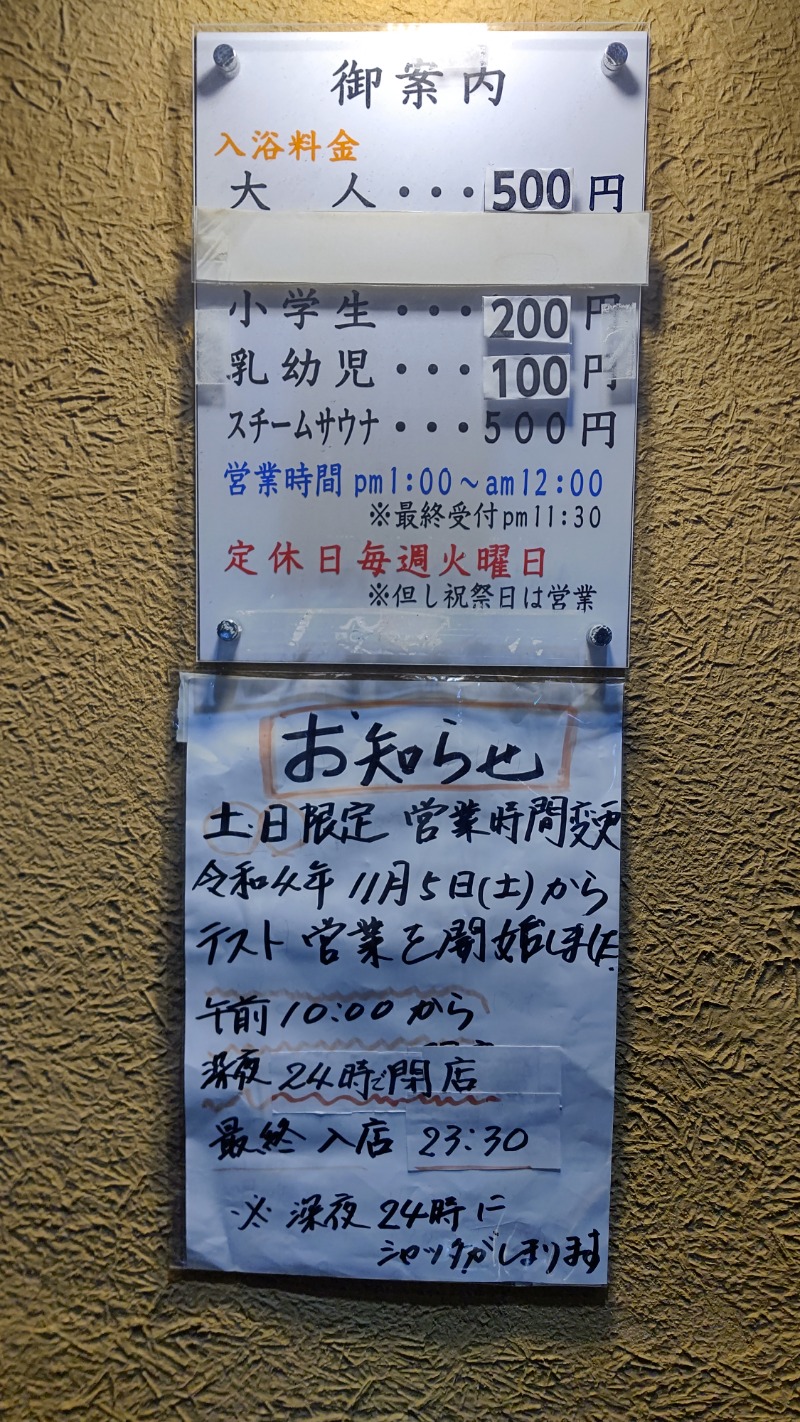 御案内
入浴料金
大人・・・500円
小学生・・・200円
乳幼児・・・100円
スチームサウナ・・・500円
営業時間 pm1:00～am12:00
※最終受付pm11:30
定休日毎週火曜日
※但し祝祭日は営業
お知らせ
土・日限定 営業時間変更
令和4年 11月5日(土)から
テスト営業を開始しました
午前10:00から
深夜24時で閉店
最終入店 23:30
※深夜24時に
シャッターがしまります